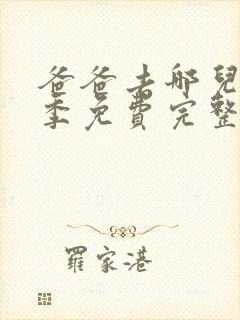 爸爸去哪兒
季免費完整
羅家港